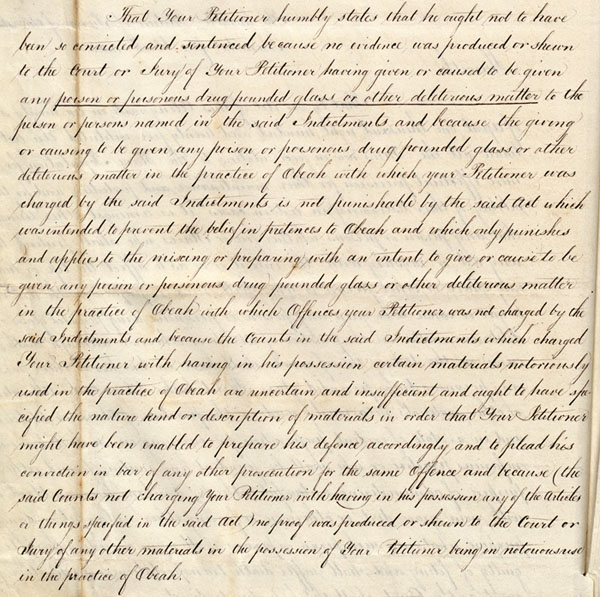 That Your Petitioner humbly states that he ought not to have
been so convicted and sentenced because no evidence was produced or shewn
to the Court or Jury of Your Petitioner having given or caused to be given
any poison or poisonous drug pounded glass or other deleterious matter to the
person or persons named in the said Indictments and because the giving
or causing to be given any poison or poisonous drug pounded glass or other
deleterious matter in the practice of Obeah with which your Petitioner was
charged by the said Indictments is not punishable by the said Act which
was intended to prevent the belief in pretences to Obeah and which only punishes
and applies to the mixing or preparing with an intent to give or cause to be
given any poison or poisonous drug pounded glass or other deleterious matter
in the practice of Obeah with which Offences your Petitioner was not charged by the
said Indictments and because the Counts in the said Indictments which charged
Your Petitioner with having in his possession certain materials notoriously
used in the practice of Obeah are uncertain and insufficient and ought to have spe-
cified the nature kind or description of materials in order that Your Petitioner
might have been enabled to prepare his defence accordingly and to plead his
conviction in bar of any other prosecution for the same Offence and because (the
said Counts not charging Your Petitioner with having in his possession any of the Articles
or things specified in the said Act) no proof was produced or shown to the Court or
Jury of any other materials in the possession of Your Petitioner being in notorious use
in the practice of Obeah.